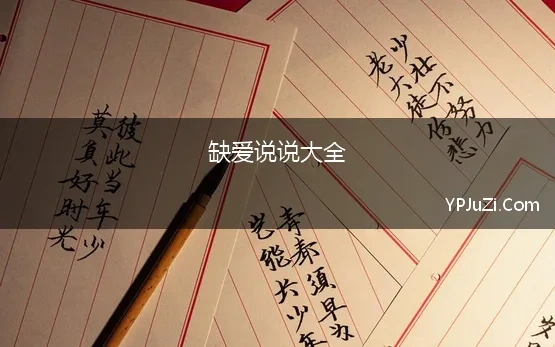 少壮不努力
老大徒伤悲
彼此当年少
莫负好时光
缺爱说说大全
YPJuZi.Com
青春須早为
岂能长少年